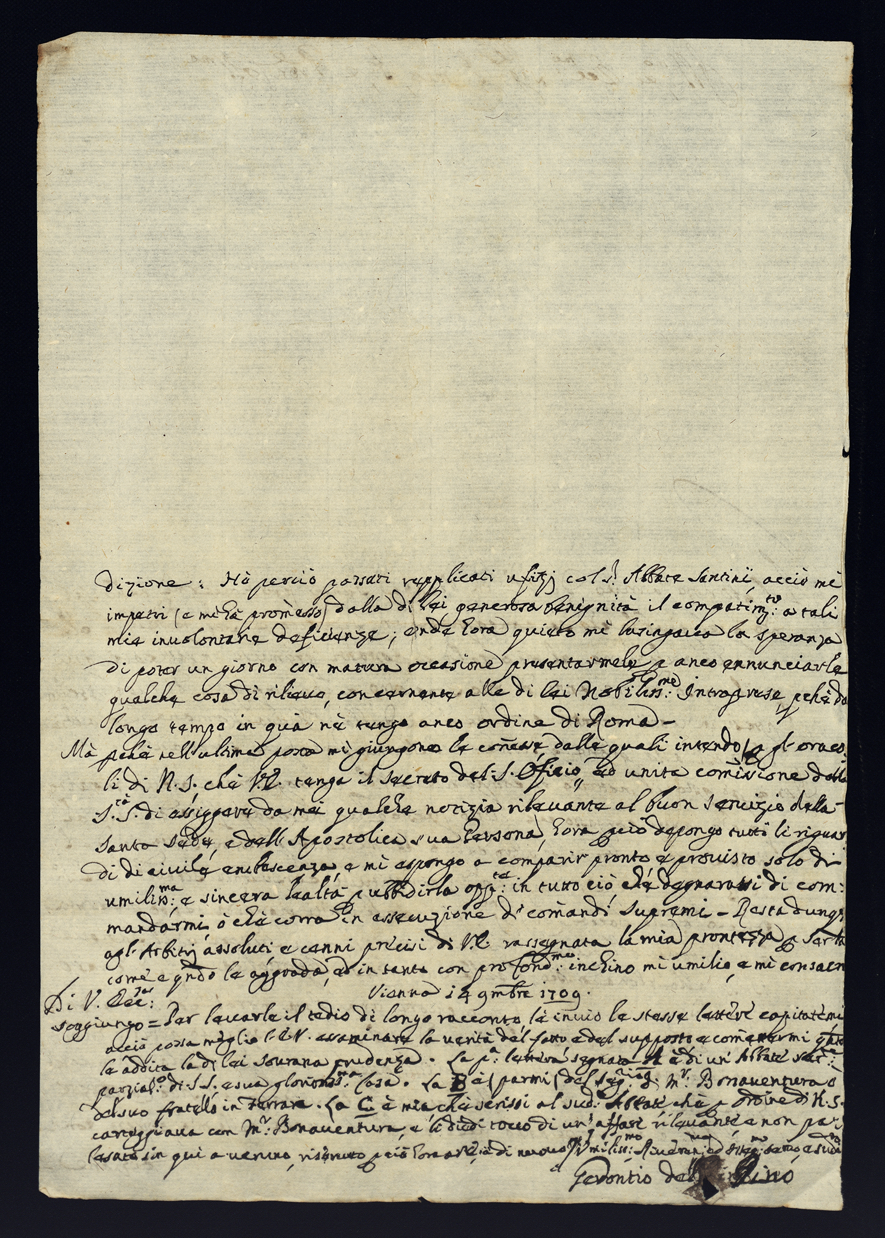 dizione: Hò perciò passati replicati ufizj col S.r Abbate Santini, acciò mi
impetri (e mi hà promesso) dalla di lei generosa benignità il compatim.to: a tali
mie involontarie deficienze; onde hora quieto mi lusingava la speranza
di poter un giorno con matura occasione presentarmele p anco annunciarle
qualche cosa di rilievo, concernente alle di lei Nobiliss.me: Intraprese, pché da
longo tempo in quà nè tengo anco ordine di Roma –
Mà pchè nell'ultima posta mi giungono le cõnesse dalle quali intendo gl'oraco
li di N. S. che V.E. tenga il secreto del S. Oficio, ed unita comissione della
S.tà S. di esiggere da me qualche notizia rilevante al buon servizio della
Santa Sede, e dell'Apostolica sua Persona, hora pciò depongo tutti li riguar
di di civile erubescenza, e mi espongo a comparir pronto e provisto solo di
umiliss.ma: e sincera lealtà p ubbidirla in tutto ciò che degnarassi di com:
mandarmi, ò che corra in essecuzione de' comandi supremi – Resta dunq
agl'Arbitrj assoluti e cenni precisi di V.E. rassegnata la mia prontezza p servirla
come e qndo le aggrada, ed in tanto con profond.mo: inchino mi umilio, e mi consacro
Di V. Ecc.za: Vienna 14 9mbre 1709.
Soggiungo = Per levarle il tedio di longo racconto le invio le stesse lettere capitatemi
acciò possa meglio l'E.V. essaminare la verità del fatto e del supposto e cõmettermi
le addita la di lei sovrana prudenza. La p.a: lettera segnata A è di un' Abbate
parzial.o di S.S. e sua glorios.ma Casa. La B è (parmi) del Seg.rio di M.r Bonaventura o
del suo fratello in Ferrara. La C è mia che scrissi al sud.o Abbate che p ordine di N.S.
carteggiava con M.r: Bonaventura, e li diedi tocco di un' affare rilevante e non pa:
lesato sin qui a veruno,
Gerontio del